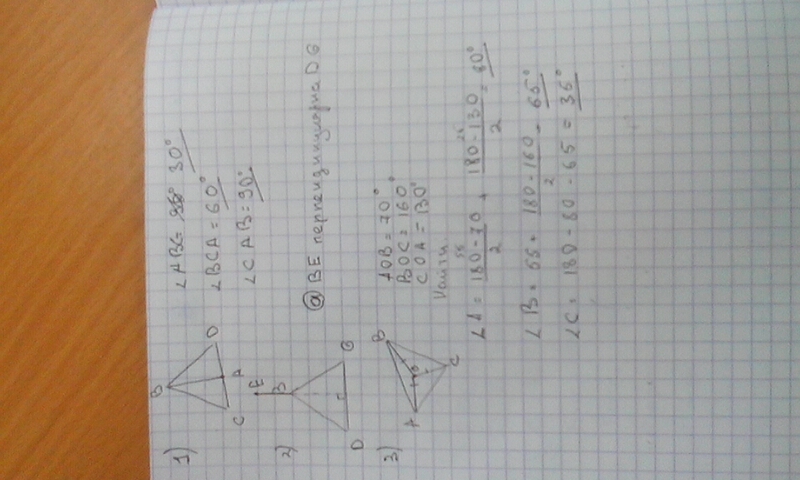 1)
B
C
A
D
∠ABC = 30°
∠BCA = 60°
∠CAB = 90°
2)
E
B
D
G
а) BE перпендикулярна DG
3)
A
B
C
AOB = 70°
BOC = 160°
COA = 130°
Найти.
∠A = 180-70 / 2 + 180-130 / 2 = 80°
55
25
∠B = 55 + 180-160 / 2 = 65°
∠C = 180 - 80 - 65 = 35°